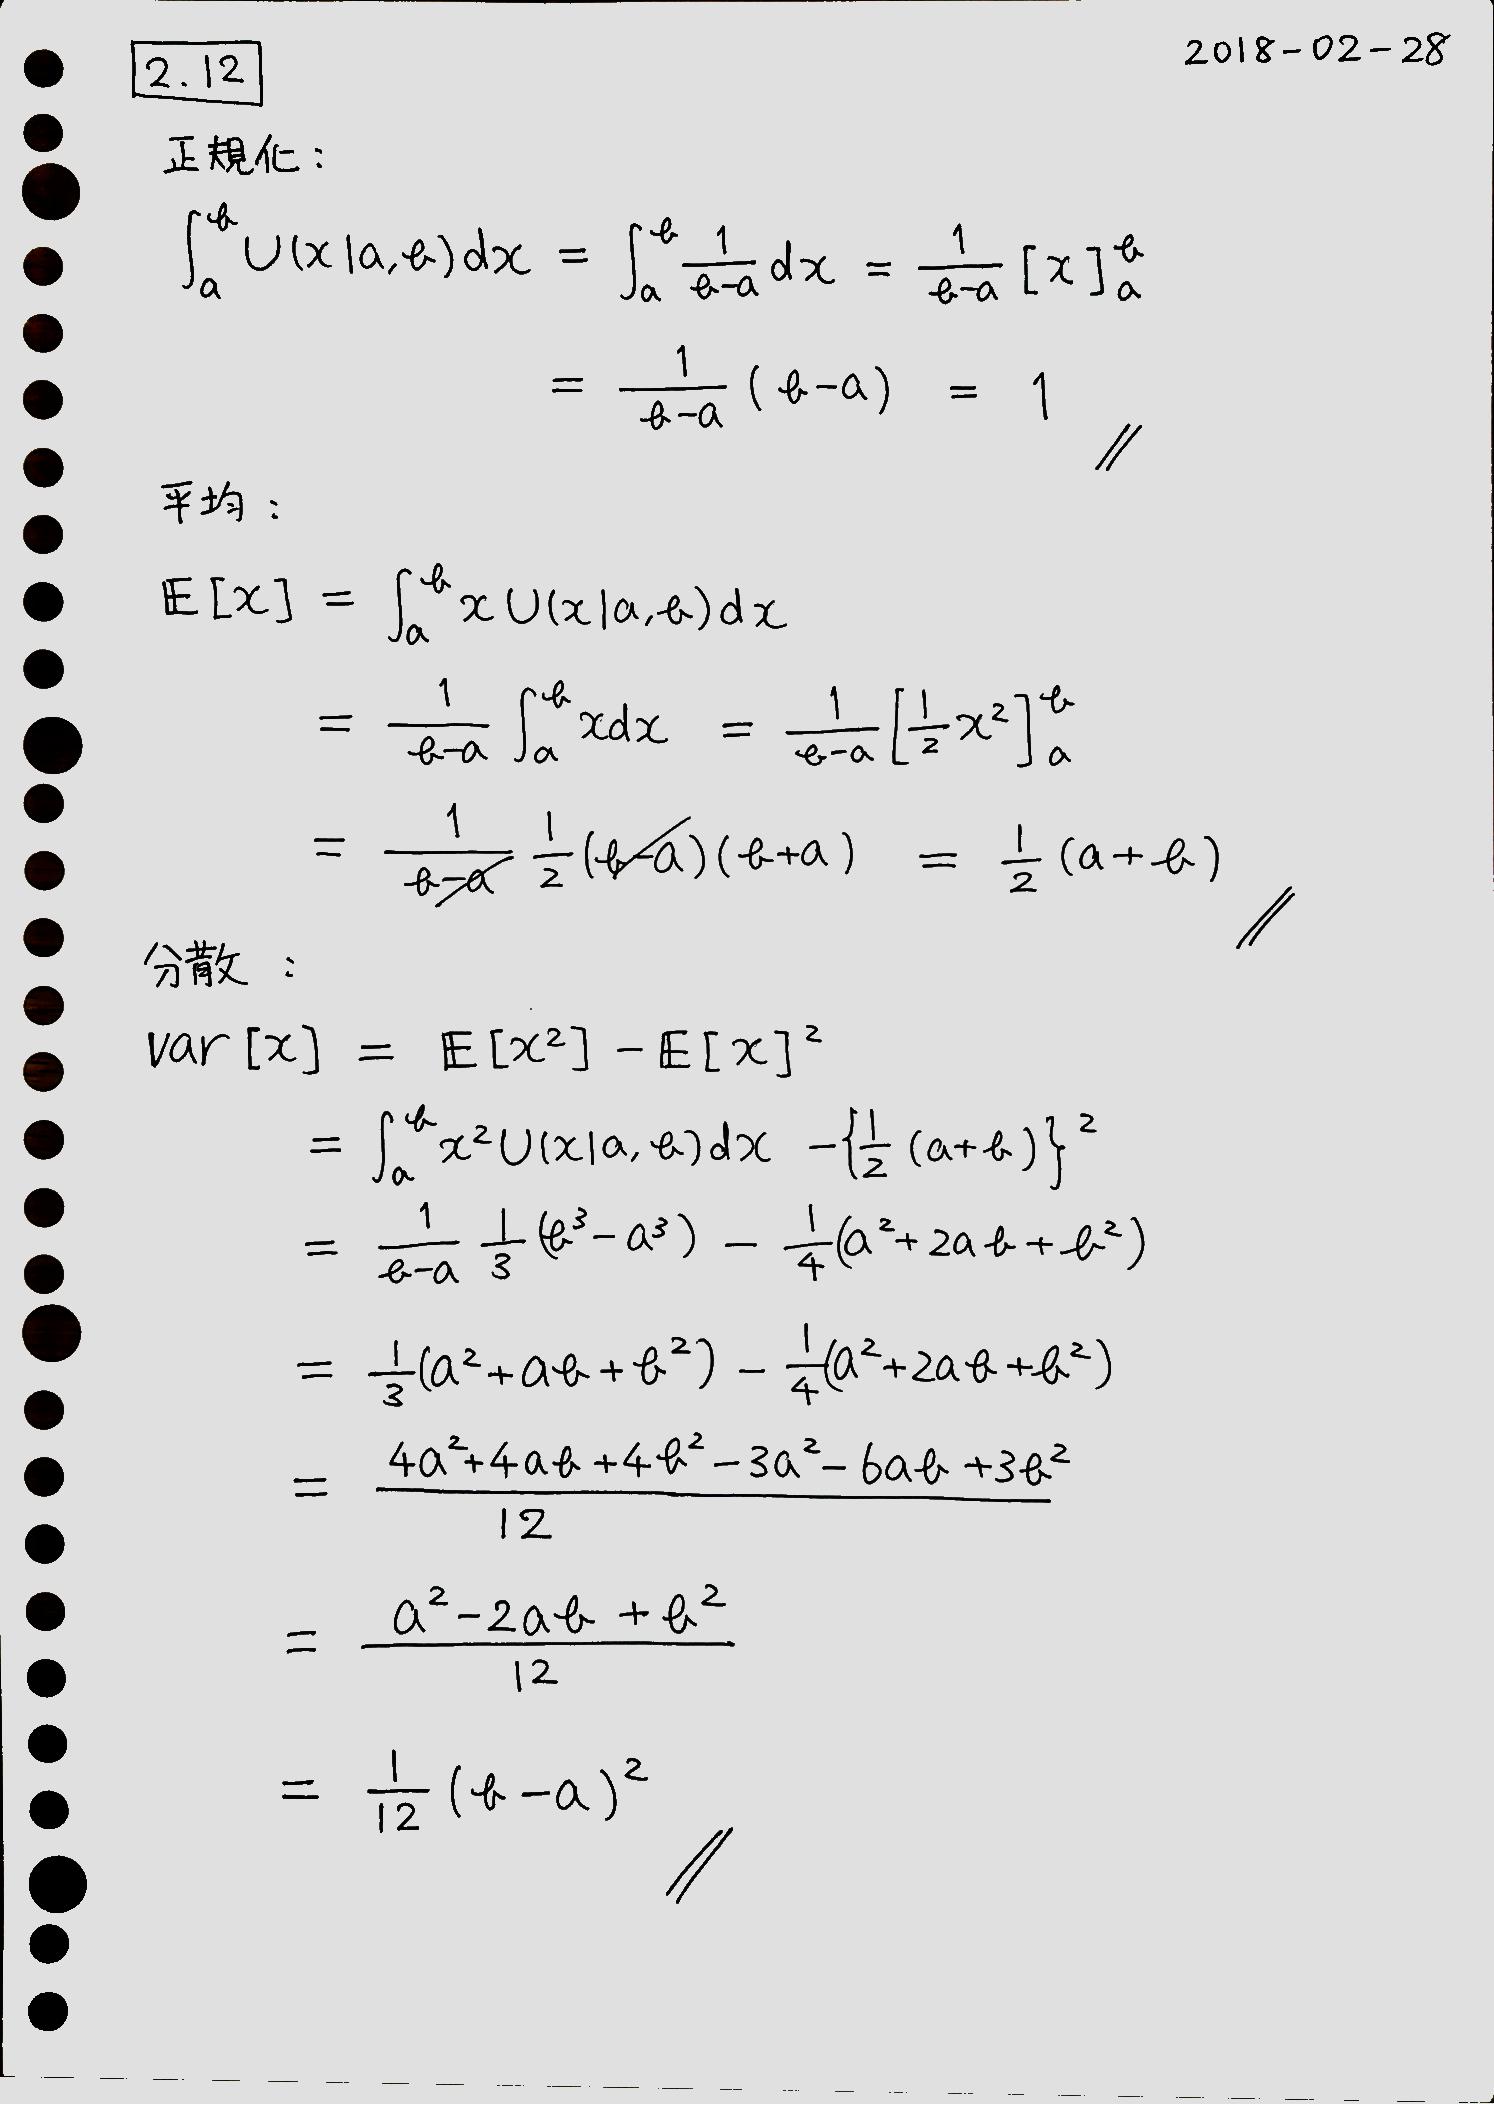 2.12
2018-02-28
正規化:
∫_a^b U(x|a,b)dx = ∫_a^b 1/(b-a) dx = 1/(b-a) [x]_a^b
= 1/(b-a) (b-a) = 1 //
平均:
𝔼[x] = ∫_a^b x U(x|a,b)dx
= 1/(b-a) ∫_a^b xdx = 1/(b-a) [1/2 x²]_a^b
= 1/(b-a) 1/2 (b-a)(b+a) = 1/2 (a+b) //
分散:
var[x] = 𝔼[x²] - 𝔼[x]²
= ∫_a^b x² U(x|a,b)dx - {1/2 (a+b)}²
= 1/(b-a) 1/3 (b³-a³) - 1/4 (a²+2ab+b²)
= 1/3 (a²+ab+b²) - 1/4 (a²+2ab+b²)
= (4a²+4ab+4b²-3a²-6ab+3b²)/12
= (a²-2ab+b²)/12
= 1/12 (b-a)² //